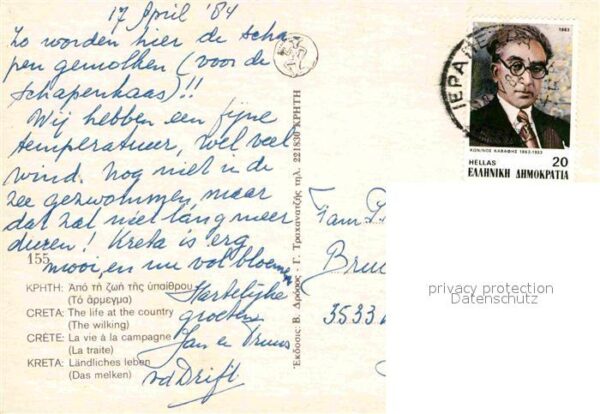 17 April '84
Zo worden hier de scha-
pen gemolken (voor de
schapenkaas)!!
Wij hebben een fijne
temperatuur, wel veel
wind. Nog niet in de
zee gezwommen, maar
dat zal niet lang meer
duren! Kreta is erg
mooi, en nu vol bloemen
Hartelijke
groeten
Jan en Truus
v d Drift.
155
ΚΡΗΤΗ: Ἀπό τή ζωή τῆς ὑπαίθρου
(Τό άρμεγμα)
CRETA: The life at the country
(The wilking)
CRÈTE: La vie à la campagne
(La traite)
KRETA: Ländliches leben
(Das melken)
Ἐκδοσις: Β. Δρόσος - Γ. Τραχανατζῆς τηλ. 221830 ΚΡΗΤΗ
Fam
3533
ΙΕΡΑΠΕΤΡΑ
1983
ΚΩΝ/ΝΟΣ ΚΑΒΑΦΗΣ 1863-1933
HELLAS 20
ΕΛΛΗΝΙΚΗ ΔΗΜΟΚΡΑΤΙΑ
privacy protection
Datenschutz